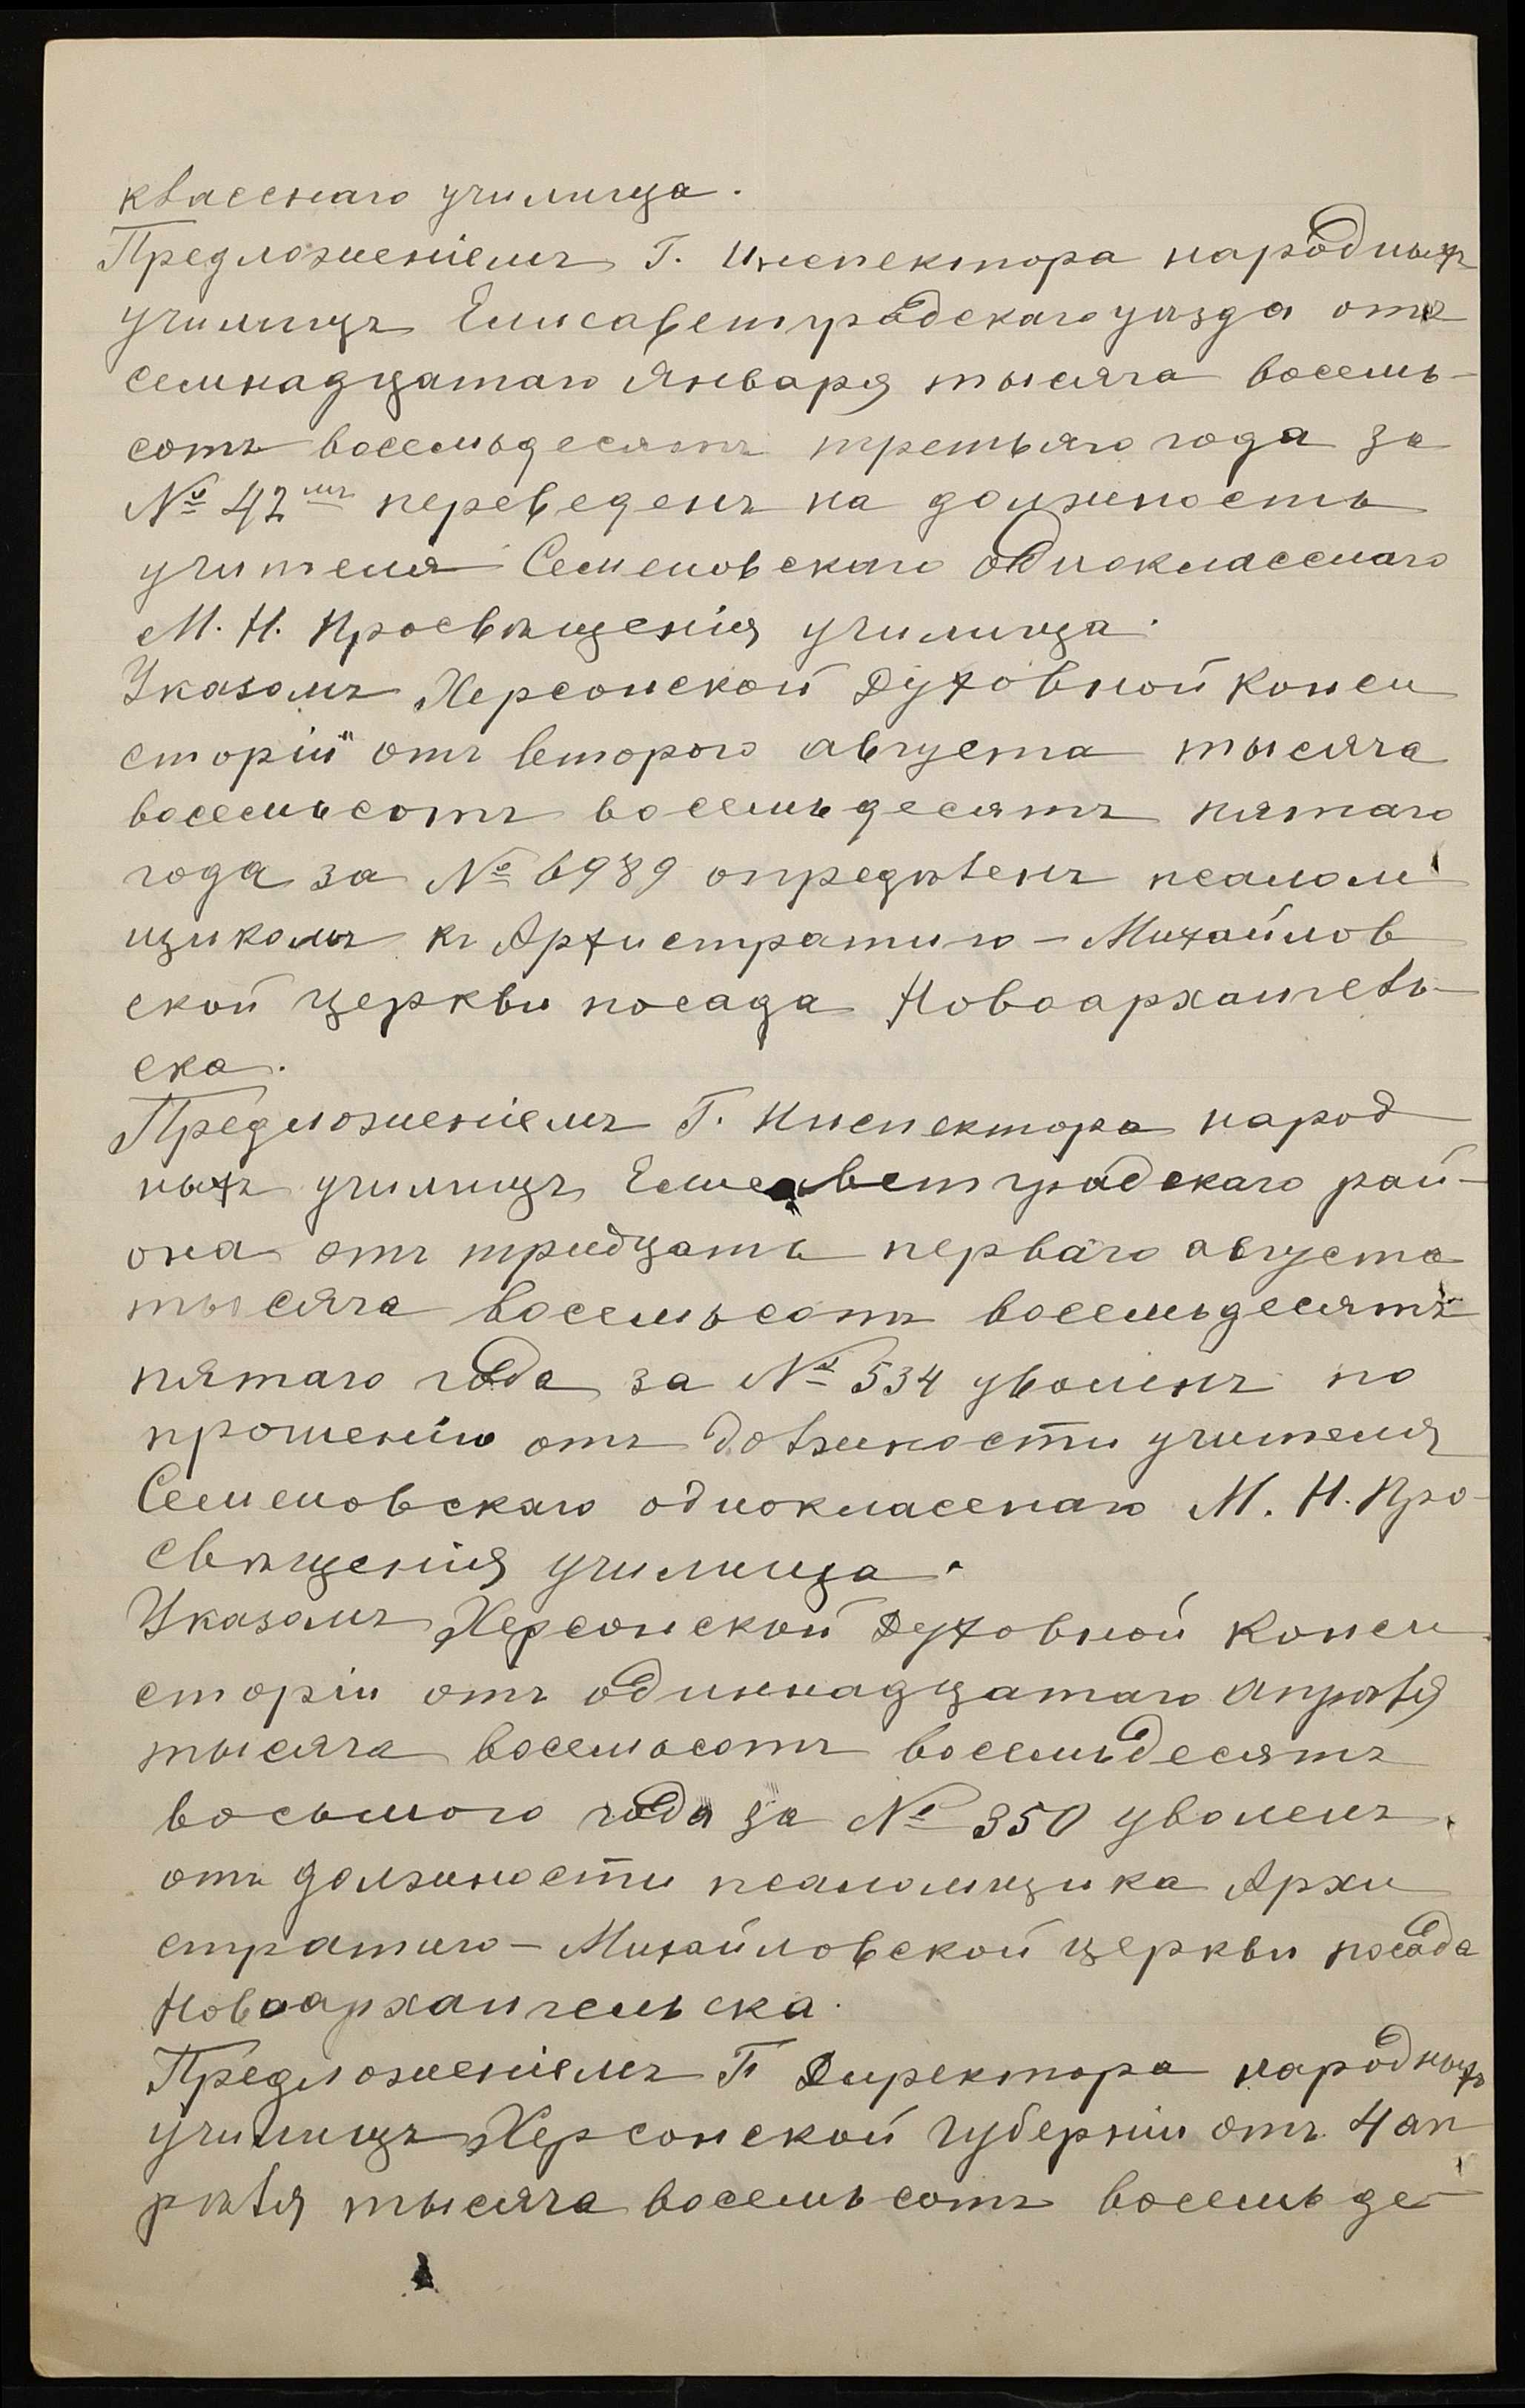 класснаго училища.
Предложеніемъ Г. Инспектора народныхъ
училищъ Елисаветградскаго уѣзда отъ
семнадцатаго Января тысяча восемь-
сотъ восемьдесятъ третьяго года за
№ 42мъ переведенъ на должность
учителя Семеновскаго однокласснаго
М. Н. Просвѣщенія училища.
Указомъ Херсонской Духовной Конси
сторіи отъ второго августа тысяча
восемьсотъ восемьдесятъ пятаго
года за № 6989 опредѣленъ псалом
щикомъ къ Архистратиго-Михайлов
ской церкви посада Новоархангель-
ска.
Предложеніемъ Г. Инспектора народ
ныхъ училищъ Елисаветградскаго рай-
она отъ тридцать перваго августа
тысяча восемьсотъ восемьдесятъ
пятаго года за № 534 уволенъ по
прошенію отъ должности учителя
Семеновскаго однокласснаго М. Н. Про-
свѣщенія училища.
Указомъ Херсонской Духовной Конси
сторіи отъ одиннадцатаго Апрѣля
тысяча восемьсотъ восемьдесятъ
восьмого года за № 350 уволенъ
отъ должности псаломщика Архи
стратиго-Михайловской церкви посада
Новоархангельска.
Предложеніемъ Г. Директора народныхъ
училищъ Херсонской губерніи отъ 4 ап
рѣля тысяча восемьсотъ восемьде-